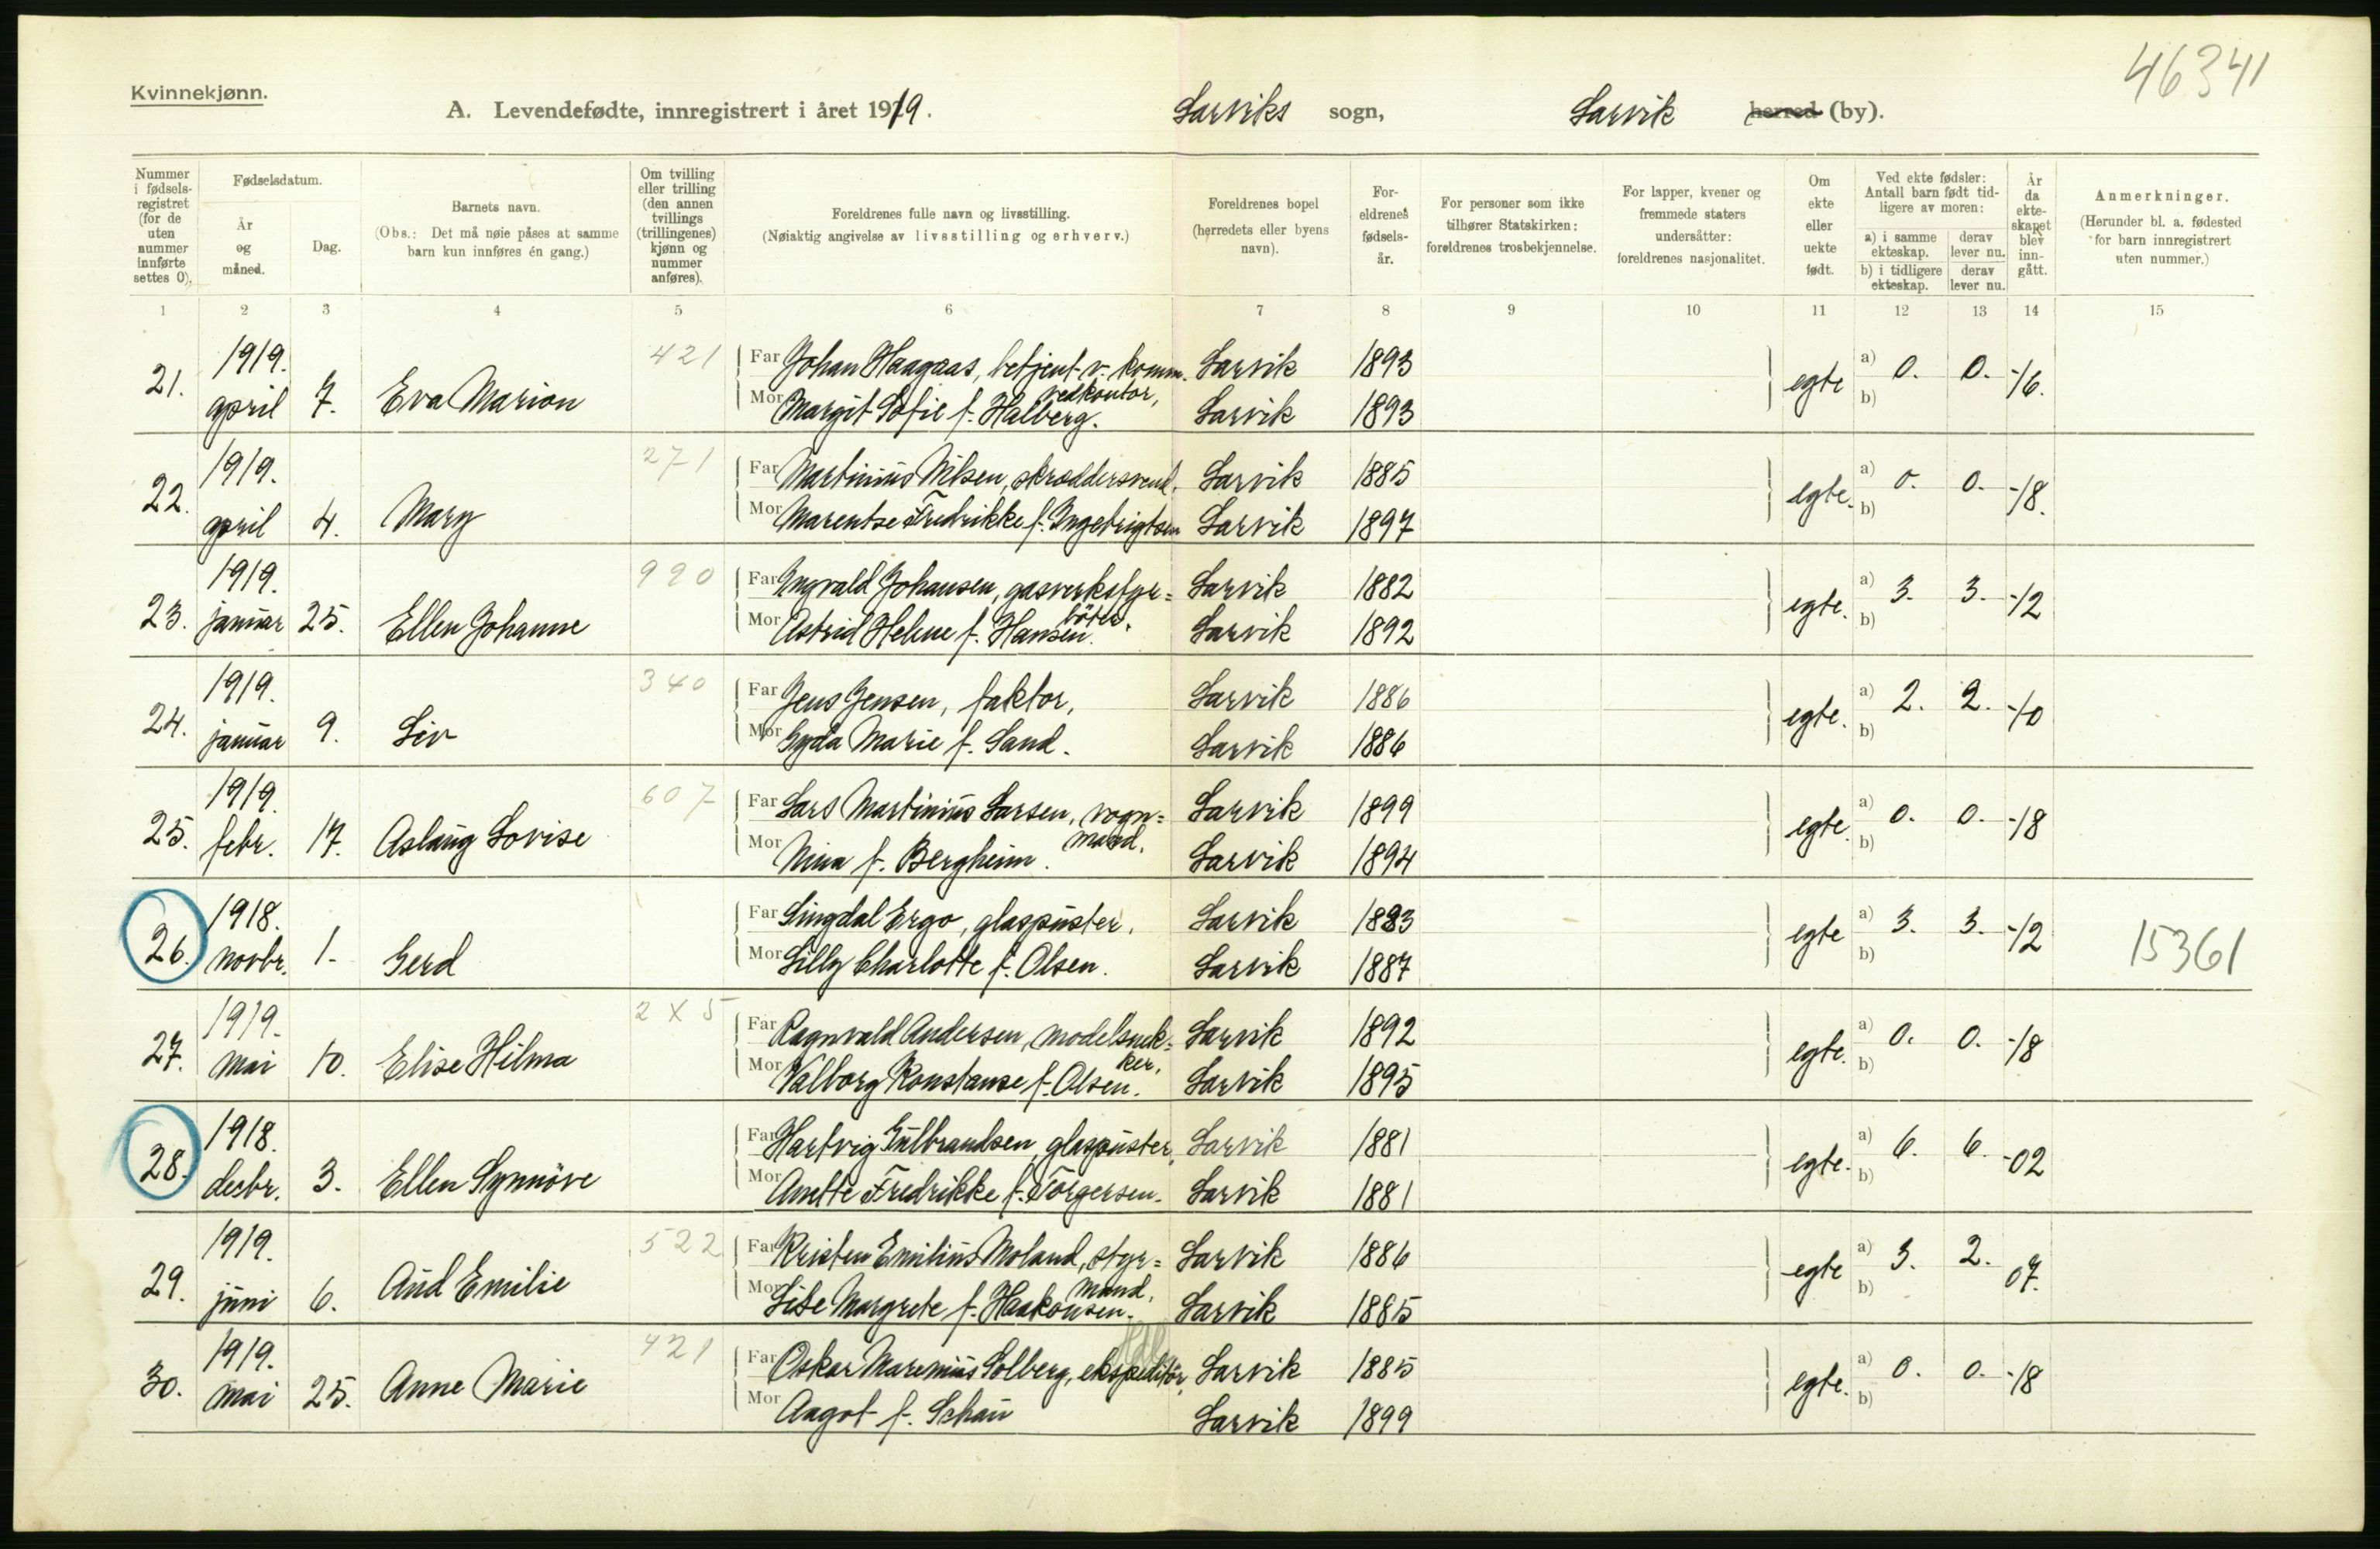 46341
Kvinnekjønn.
A. Levendefødte, innregistrert i året 1919. Larviks sogn, Larvik herred (by).
Nummer i fødselsregistret (for de uten nummer innførte settes 0).
Fødselsdatum.
År og måned.
Dag.
Barnets navn.
(Obs.: Det må nøie påses at samme barn kun innføres én gang.)
Om tvilling eller trilling (den annen tvillings (trillingenes) kjønn og nummer anføres).
Foreldrenes fulle navn og livsstilling.
(Nøiaktig angivelse av livsstilling og erhverv.)
Foreldrenes bopel (herredets eller byens navn).
Foreldrenes fødselsår.
For personer som ikke tilhører Statskirken: foreldrenes trosbekjennelse.
For lapper, kvener og fremmede staters undersåtter: foreldrenes nasjonalitet.
Om ekte eller uekte født.
Ved ekte fødsler: Antall barn født tidligere av moren:
a) i samme ekteskap. derav lever nu.
b) i tidligere ekteskap. derav lever nu.
År da ekteskapet blev inngått.
Anmerkninger.
(Herunder bl. a. fødested for barn innregistrert uten nummer.)
1 2 3 4 5 6 7 8 9 10 11 12 13 14 15
21. 1919. april 7. Eva Marion 421 Far Johan Haagaas, betjent v. komm. vedkontor, Larvik 1893 egte a) 0. 0. -16.
Mor Margit Sofie f. Halberg. Larvik 1893 b)
22. 1919. april 4. Mary 271 Far Martinius Nilsen, skræddersvend, Larvik 1885 egte. a) 0. 0. -18.
Mor Marentse Fredrikke f. Ingebrigtsen Larvik 1897 b)
23. 1919. januar 25. Ellen Johanne 990 Far Ingvald Johansen, gasverksfyr=böter. Larvik 1882 egte. a) 3. 3. -12
Mor Astrid Helene f. Hansen. Larvik 1892 b)
24. 1919. januar 9. Liv 340 Far Jens Jensen, faktor, Larvik 1886 egte. a) 2. 2. -10
Mor Gyda Marie f. Sand. Larvik 1886 b)
25. 1919. febr. 17. Aslaug Lovise 607 Far Lars Martinius Larsen, vogn=mand. Larvik 1899 egte. a) 0. 0. -18
Mor Nina f. Bergheim. Larvik 1894 b)
26. 1918. novbr. 1. Gerd Far Lingdal Ergo, glaspuster, Larvik 1883 egte a) 3. 3. -12 15361
Mor Lilly Charlotte f. Olsen. Larvik 1887 b)
27. 1919. mai 10. Elise Hilma 2X5 Far Ragnvald Andersen, modelsnek=ker, Larvik 1892 egte. a) 0. 0. -18
Mor Valborg Konstanse f. Olsen. Larvik 1895 b)
28. 1918. decbr. 3. Ellen Synnöve Far Hartvig Gulbrandsen, glaspuster, Larvik 1881 egte. a) 6. 6. -02
Mor Anette Fredrikke f. Torgersen. Larvik 1881 b)
29. 1919. juni 6. Aud Emilie 522 Far Kristen Emilius Moland, styr=mand, Larvik 1886 egte a) 3. 2. 07.
Mor Lise Margrete f. Haakonsen. Larvik 1885 b)
30. 1919. mai 25. Anne Marie 421 Far Oskar Marenius Solberg, ekspeditör, Larvik 1885 egte. a) 0. 0. -18
Mor Aagot f. Schau Larvik 1899 b)